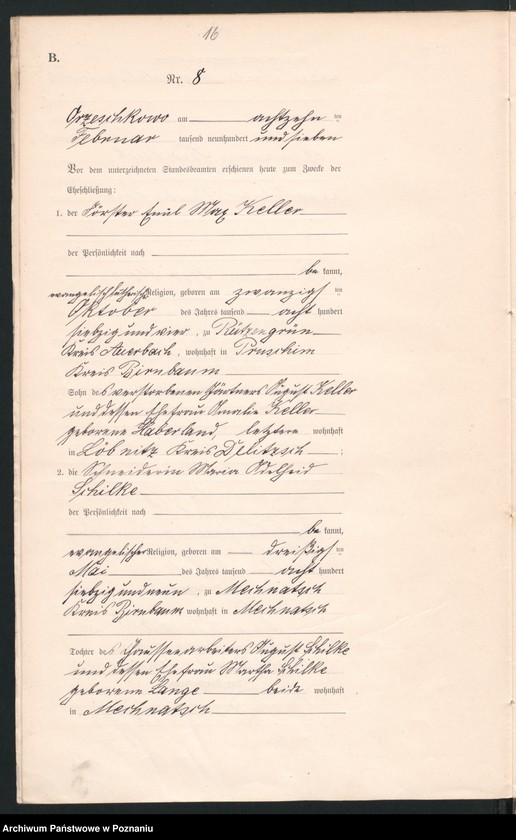 16
B.
Nr. 8
Orzeschkowo am achtzehn ten
Februar tausend neunhundert und sieben
Vor dem unterzeichneten Standesbeamten erschienen heute zum Zwecke der
Eheschließung:
1. der Förster Emil Max Keller
der Persönlichkeit nach
be kannt,
evangelisch lutherische Religion, geboren am zwanzigs ten
Oktober des Jahres tausend acht hundert
siebzig und vier, zu Rützengrün
Kreis Auerbach, wohnhaft in Pruschim
Kreis Birnbaum
Sohn des verstorbenen Gärtners August Keller
und dessen Ehefrau Amalie Keller
geborene Haberland, letztere wohnhaft
in Löbnitz Kreis Delitzsch ;
2. die Schneiderin Maria Adelheid
Schilke
der Persönlichkeit nach
be kannt,
evangelischer Religion, geboren am dreißigs ten
Mai des Jahres tausend acht hundert
siebzig und neun, zu Mechnatsch
Kreis Birnbaum wohnhaft in Mechnatsch
Tochter des Chausseearbeiters August Schilke
und dessen Ehefrau Martha Schilke
geborene Lange beide wohnhaft
in Mechnatsch
Archiwum Państwowe w Poznaniu